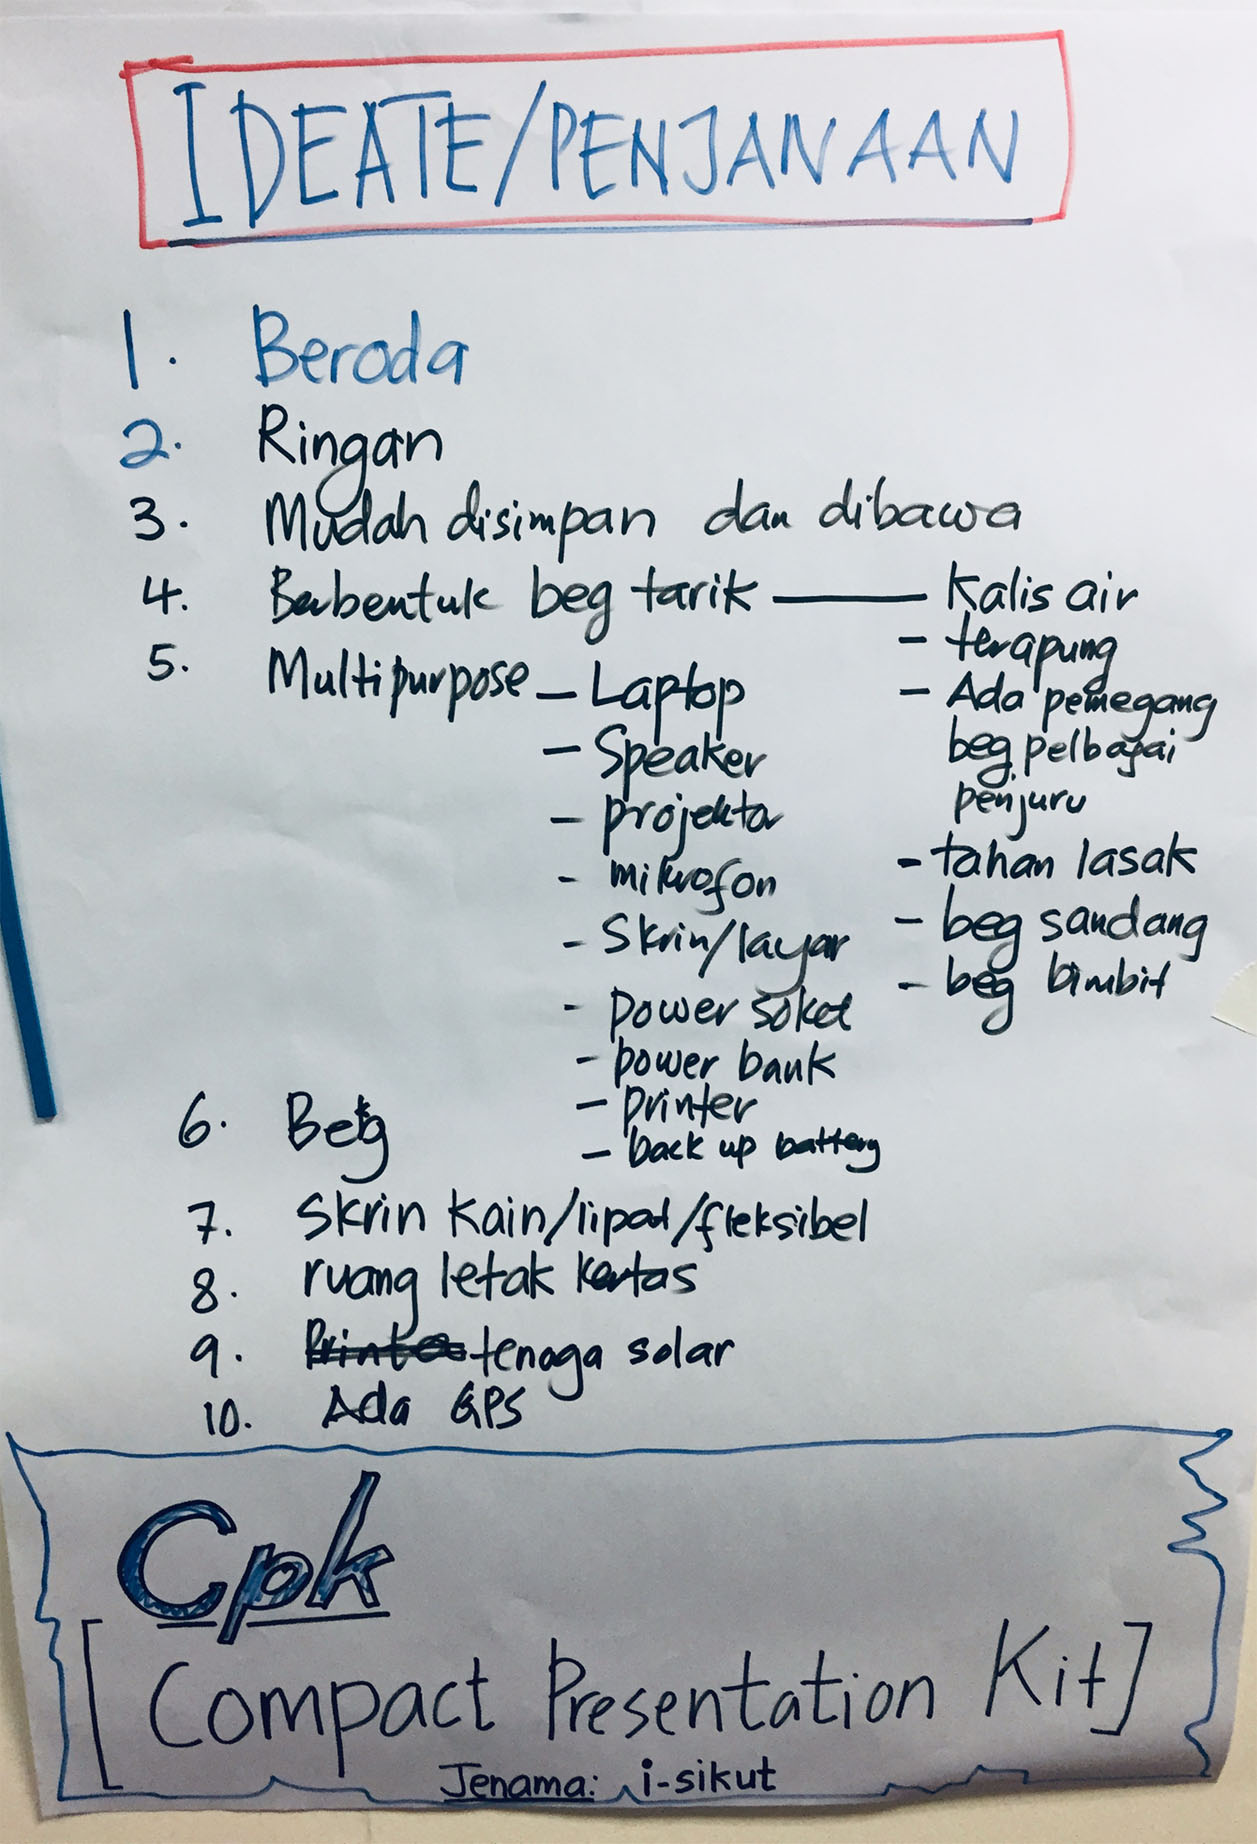 IDEATE/PENJANAAN
1. Beroda
2. Ringan
3. Mudah disimpan dan dibawa
4. Berbentuk beg tarik — Kalis air
- terapung
- Ada pemegang
beg pelbagai
penjuru
- tahan lasak
- beg sandang
- beg bimbit
5. Multipurpose - Laptop
- Speaker
- projektor
- mikrofon
- Skrin/layar
- power soket
- power bank
- printer
- back up battery
6. Beg
7. Skrin kain/lipat/fleksibel
8. ruang letak kertas
9. tenaga solar
10. Ada GPS
Cpk
[Compact Presentation Kit]
Jenama: i-sikut